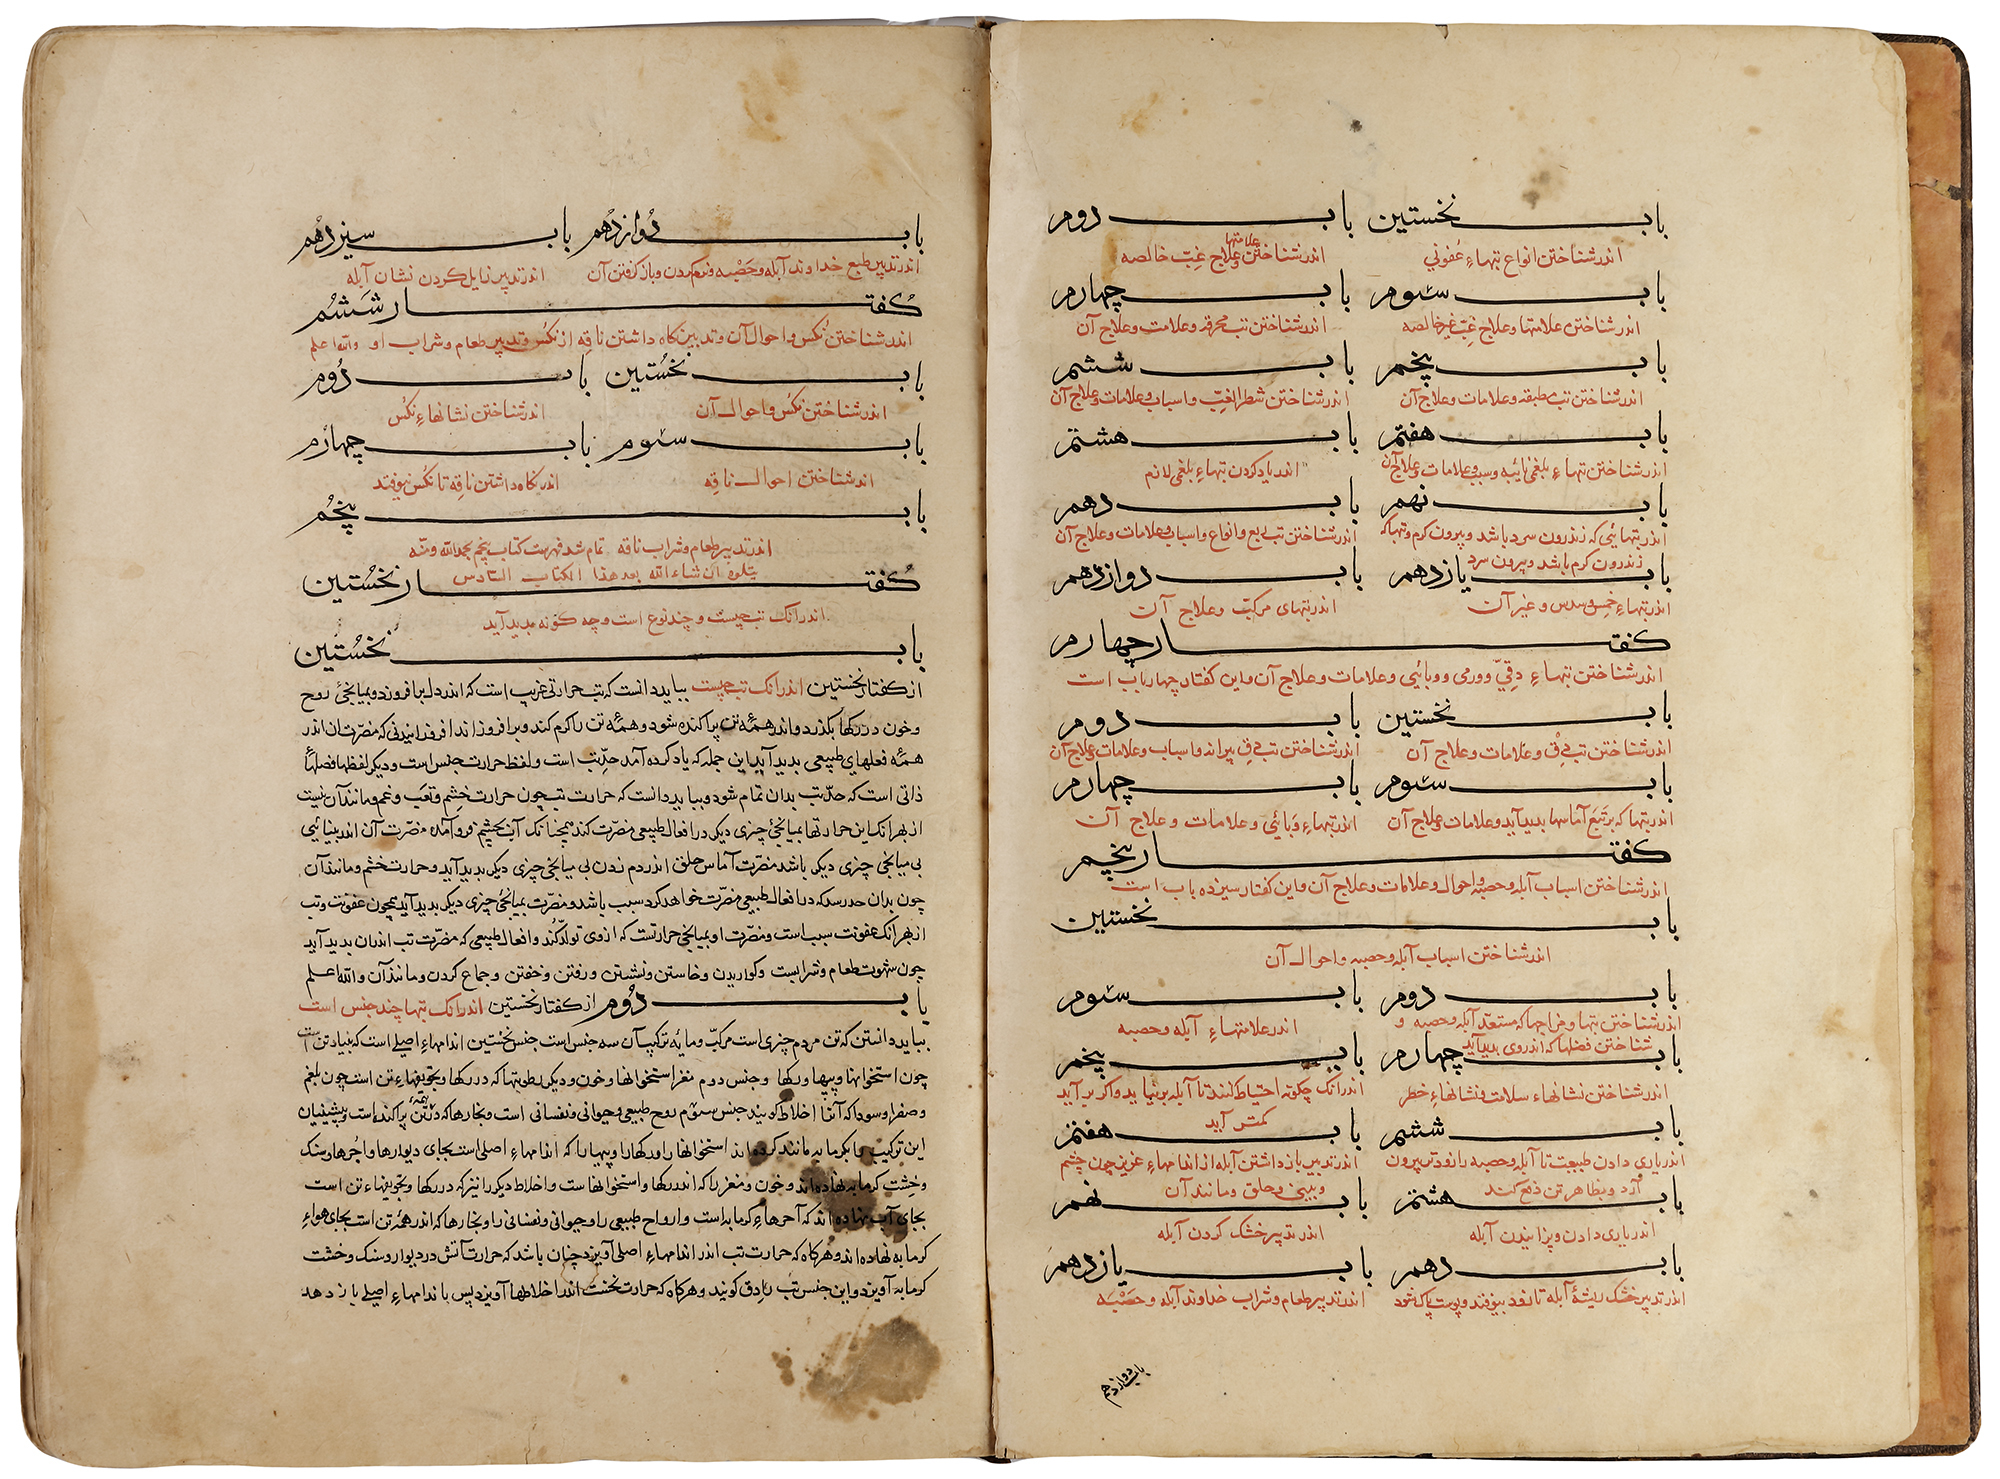 باب نخستین باب دوم
اندر شناختن انواع تبهاء عفونی اندر شناختن علامتها و علاج غب خالصه
باب سوم باب چهارم
اندر شناختن علامتها و علاج غب غیر خالصه اندر شناختن تب محرقه و علامت و علاج آن
باب پنجم باب ششم
اندر شناختن تب مطبقه و علامات و علاج آن اندر شناختن شطر الغب و اسباب و علامات و علاج آن
باب هفتم باب هشتم
اندر شناختن تبهاء بلغمی نائبه و سبب و علامات و علاج آن اندر یاد کردن تبهاء بلغمی لازم
باب نهم باب دهم
اندر تبهائی که اندرون سرد باشد و بیرون گرم و تبها که اندر شناختن تب ربع و انواع و اسباب و علامات و علاج آن
اندرون گرم باشد و بیرون سرد
باب یازدهم باب دوازدهم
اندر تبهاء خمس و سدس و غیر آن اندر تبهای مرکب و علاج آن
کفتار چهارم
اندر شناختن تبهاء دقی و ورمی و وبائی و علامات و علاج آن و این کفتار چهار باب است
باب نخستین باب دوم
اندر شناختن تب دق و علامات و علاج آن اندر شناختن تب دق پیرانه و اسباب و علامات و علاج آن
باب سوم باب چهارم
اندر تبها که بر تبع آماسها بدید آید و علامات و علاج آن اندر تبهاء وبائی و علامات و علاج آن
کفتار پنجم
اندر شناختن اسباب آبله و حصبه و احوال و علامات و علاج آن و این کفتار سیزده باب است
باب نخستین
اندر شناختن اسباب آبله و حصبه و احوال آن
باب دوم باب سوم
اندر شناختن تبها و مزاجها که مستعد آبله و حصبه و اندر علامتهاء آبله و حصبه
شناختن فصلها که اندر وی بدید آید
باب چهارم باب پنجم
اندر شناختن نشانهاء سلامت و نشانهاء خطر اندر انک چکونه احتیاط کنند تا آبله بر نیاید و اگر بر آید
کمتر آید
باب ششم باب هفتم
اندر یاری دادن طبیعت تا آبله و حصبه را زودتر بیرون اندر تدبیر باز داشتن آبله از اندامهاء عزیز چون چشم
آرد و بظاهر تن دفع کند و بینی و حلق و مانند آن
باب هشتم باب نهم
اندر یاری دادن و پزانیدن آبله اندر تدبیر خشک کردن آبله
باب دهم باب یازدهم
اندر تدبیر خشک ریشهٔ آبله تا زود بیوفتد و پوست پاک شود اندر تدبیر طعام و شراب خداوند آبله و حصبه
باب دوازدهم
باب دوازدهم باب سیزدهم
اندر تدبیر طبع خداوند آبله و حصبه و نرم کردن و باز کرفتن آن اندر تدبیر زایل کردن نشان آبله
کفتار ششم
اندر شناختن نکس و احوال آن و تدبیر نکاه داشتن ناقه از نکس و تدبیر طعام و شراب او والله اعلم
باب نخستین باب دوم
اندر شناختن نکس و احوال آن اندر شناختن نشانهاء نکس
باب سوم باب چهارم
اندر شناختن احوال ناقه اندر نکاه داشتن ناقه تا نکس نیوفتد
باب پنجم
اندر تدبیر طعام و شراب ناقه تمام شد فهرست کتاب پنجم بحمدالله و منه
یتلوه ان شاء الله بعد هذا الکتاب السادس
کفتار نخستین
اندر انک تب چیست و چند نوع است و چه کونه بدید آید
باب نخستین
از کفتار نخستین اندر انک تب چیست بباید دانست که تب حرارتی غریب است که اندر دل بر افروزد و بمیانجی روح
و خون در رکها بکذرد و اندر همه تن پراکنده شود و همه تن را کرم کند و بر افروزاند افروزانیدنی که مضرت ان اندر
همه فعلهای طبیعی بدید آید این جمله که یاد کرده آمد حد تب است و لفظ حرارت جنس است و دیکر لفظها فصلها
ذاتی است که حد تب بدان تمام شود و بباید دانست که حرارت تب چون حرارت خشم و تعب و غم و مانند آن نیست
از بهر انک این حرارتها بمیانجی چیزی دیکر در افعال طبیعی مضرت کند همچنانک آب بچشم فرو آمده مضرت آن اندر بینائی
بی میانجی چیزی دیکر باشد مضرت آماس حلق اندر دم زدن بی میانجی چیزی دیکر بدید آید و حرارت خشم و مانند آن
چون بدان حد رسد که در افعال طبیعی مضرت خواهد کرد سبب باشد و مضرت بمیانجی چیزی دیکر بدید آید همچون عفونت و تب
از بهر انک عفونت سبب است و مضرت او بمیانجی حرارتست که از وی تولد کند و افعال طبیعی که مضرت تب اندران بدید آید
چون شهوت طعام و شرابست و کواریدن و خاستن و نشستن و رفتن و خفتن و جماع کردن و مانند آن والله اعلم
باب دوم از کفتار نخستین اندر انک تبها چند جنس است
بباید دانستن که تن مردم چیزی است مرکب و مایه ترکیب آن سه جنس است جنس نخستین اندامهاء اصلی است که بنیاد تن است
چون استخوانها و پیها و رکها و جنس دوم مغز استخوانها و خون و دیکر رطوبتها که در رکها و تجویفهاء تن است چون بلغم
و صفرا و سودا که آنرا اخلاط کویند جنس سوم روح طبیعی و حیوانی و نفسانی است و بخارها که در همه تن پراکنده است و پیشینیان
این ترکیب را بکرمابه مانند کرده اند استخوانها را و رکها را و پیها را که اندامهاء اصلی است بجای دیوارها و آجرها و سنک
و خشت کرمابه نهاده اند و خون و مغز را که اندر رکها و استخوانهاست و اخلاط دیکر را نیز که در رکها و تجویفهاء تن است
بجای آب نهاده اند که آخرهاء کرمابه است و ارواح طبیعی را و حیوانی و نفسانی را و بخارها که اندر همه تن است بجای هواء
کرمابه نهاده اند و هرکاه که حرارت تب اندر اندامهاء اصلی آویزد چنان باشد که حرارت آتش در دیوار و سنک و خشت
کرمابه آویزد و این جنس تب را دق کویند و هرکاه که حرارت نخست اندر اخلاطها آویزد پس باندامهاء اصلی باز دهد